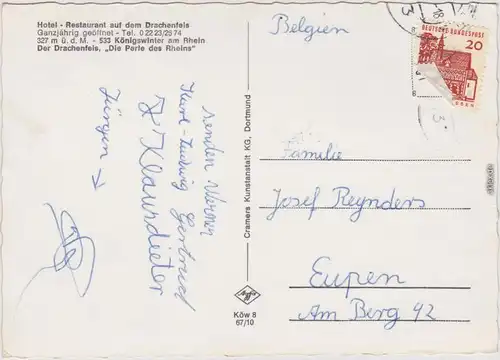 Hotel - Restaurant auf dem Drachenfels
Ganzjährig geöffnet - Tel. 0 22 23/29 74
327 m ü. d. M. - 533 Königswinter am Rhein
Der Drachenfels, „Die Perle des Rheins"
senden Werner
Kurt-Ludwig Gertrud
Klausdieter
Jürgen →
Cramers Kunstanstalt KG, Dortmund
Agfa
Köw 8
67/10
Belgien
DEUTSCHE BUNDESPOST
20
Familie
Josef Reynders
Eupen
Am Berg 42